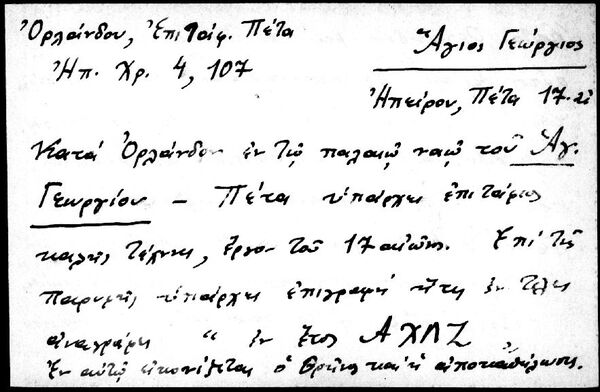 Ὀρλάνδου, Ἐπιτάφ. Πέτα
Ἠπ. Χρ. 4, 107
Ἅγιος Γεώργιος
Ἠπείρου, Πέτα 17. αἰ
Κατά Ὀρλάνδον ἐν τῷ παλαιῷ ναῷ τοῦ Ἁγ.
Γεωργίου – Πέτα ὑπάρχει ἐπιτάφιος
καλῆς τέχνης, ἔργον τοῦ 17 αἰῶνος. Ἐπί τῆς
παρυφῆς ὑπάρχει ἐπιγραφή ἥτις ἐν τέλει
ἀναγράφει " ἐν ἔτος ΑΧΛΖ
Ἐν αὐτῷ εἰκονίζεται ὁ Θρῆνος καί ἡ ἀποκαθήλωσις.